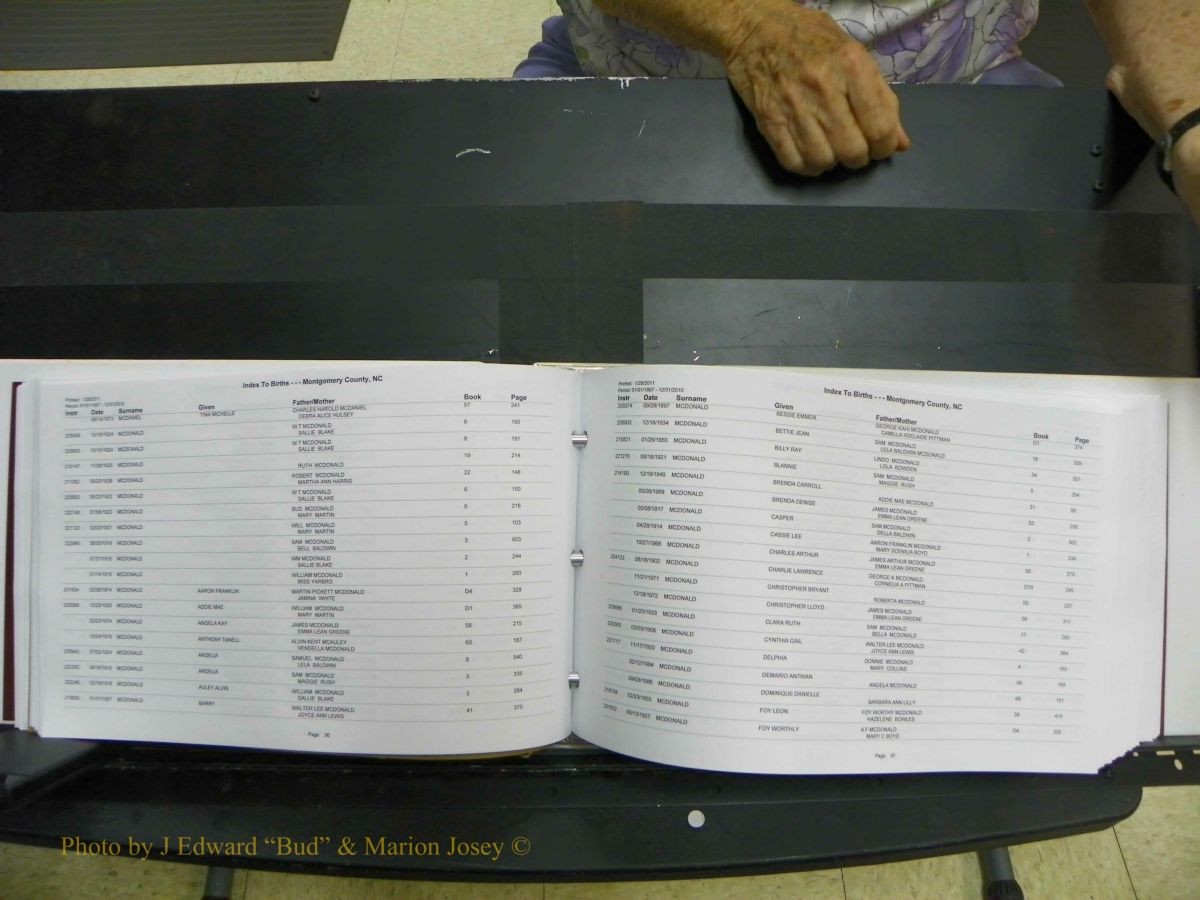 Index To Births - - - Montgomery County, NC
Printed: 1/28/2011
Period: 01/01/1867 - 12/31/2010
Instr Date Surname Given Father/Mother Book Page
MCDANIEL TINA MICHELLE CHARLES HAROLD MCDANIEL 57 241
DEBRA ALICE HULSEY
10/19/1924 MCDONALD W T MCDONALD 8 190
SALLIE BLAKE
MCDONALD W T MCDONALD 8 191
SALLIE BLAKE
MCDONALD RUTH MCDONALD 19 214
MCDONALD ROBERT MCDONALD 22 148
MARTHA ANN HARRIS
MCDONALD W T MCDONALD 6 150
SALLIE BLAKE
MCDONALD BUD MCDONALD 6 218
MARY MARTIN
MCDONALD WILL MCDONALD 5 103
MARY MARTIN
MCDONALD SAM MCDONALD 3 903
BELL BALDWIN
MCDONALD WM MCDONALD 2 244
SALLIE BLAKE
MCDONALD WILLIAM MCDONALD 1 260
MISS YARBRO
MCDONALD AARON FRANKLIN MARTIN PICKETT MCDONALD D4 328
JAMINA WHITE
MCDONALD ADDIE MAE WILLIAM MCDONALD D1 389
MARY MARTIN
02/02/1974 MCDONALD ANGELA KAY JAMES MCDONALD 58 215
EMMA LEAN GREENE
MCDONALD ANTHONY TANELL ALVIN KENT MCAULEY 60 187
VENDELLA MCDONALD
MCDONALD ARDELIA SAMUEL MCDONALD 8 540
LELA BALDWIN
MCDONALD ARDELIA SAM MCDONALD 3 335
MAGGIE RUSH
MCDONALD AULEY ALVIN WILLIAM MCDONALD 3 284
SALLIE BLAKE
MCDONALD BARRY WALTER LEE MCDONALD 41 370
JOYCE ANN LEWIS
Page: 96
Printed: 1/28/2011
Period: 01/01/1867 - 12/31/2010
Index To Births - - - Montgomery County, NC
Instr Date Surname Given Father/Mother Book Page
200374 09/28/1897 MCDONALD BESSIE EMMER GEORGE KAHI MCDONALD D1 374
CAMILLA ADELAIDE PITTMAN
12/18/1934 MCDONALD BETTIE JEAN SAM MCDONALD 18 309
LELA BALDWIN MCDONALD
01/29/1950 MCDONALD BILLY RAY LINDO MCDONALD 34 351
LOLA BOWDEN
221276 08/18/1921 MCDONALD BLANNIE SAM MCDONALD 5 264
MAGGIE RUSH
214190 12/19/1946 MCDONALD BRENDA CARROLL ADDIE MAE MCDONALD 31 98
05/26/1969 MCDONALD BRENDA DENISE JAMES MCDONALD 53
EMMA LEAN GREENE
05/08/1917 MCDONALD CASPER SAM MCDONALD 2 902
DELLA BALDWIN
04/28/1914 MCDONALD CASSIE LEE AARON FRANKLIN MCDONALD 1 234
MARY SCENILIA BOYD
10/27/1966 MCDONALD CHARLES ARTHUR JAMES ARTHUR MCDONALD 50 270
EMMA LEAN GREENE
204123 08/18/1902 MCDONALD CHARLIE LAWRENCE GEORGE K MCDONALD 240
CORNELIA A PITTMAN
11/21/1971 MCDONALD CHRISTOPHER BRYANT ROBERTA MCDONALD 237
12/18/1972 MCDONALD CHRISTOPHER LLOYD JAMES MCDONALD 56 211
EMMA LEAN GREENE
01/20/1933 MCDONALD CLARA RUTH SAM MCDONALD 17
BELLA MCDONALD
03/03/1958 MCDONALD CYNTHIA GAIL WALTER LEE MCDONALD 42 384
JOYCE ANN LEWIS
221117 11/17/1920 MCDONALD DELPHIA DONNIE MCDONALD 4 163
MARY COLLINS
02/12/1984 MCDONALD DEMARIO ANTWAN ANGELA MCDONALD 66 169
09/03/1986 MCDONALD DOMINIQUE DANIELLE BARBARA ANN LILLY 68 151
02/23/1955 MCDONALD FOY LEON FOY WORTHY MCDONALD 39 416
HAZELENE BOWLES
08/13/1907 MCDONALD FOY WORTHLY A F MCDONALD D4 328
MARY C BOYD
Page: 97
Photo by J Edward “Bud” & Marion Josey ©